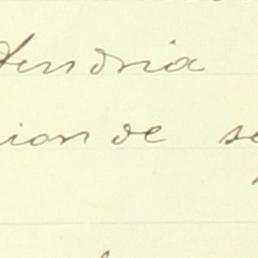 Hendria
ion de se